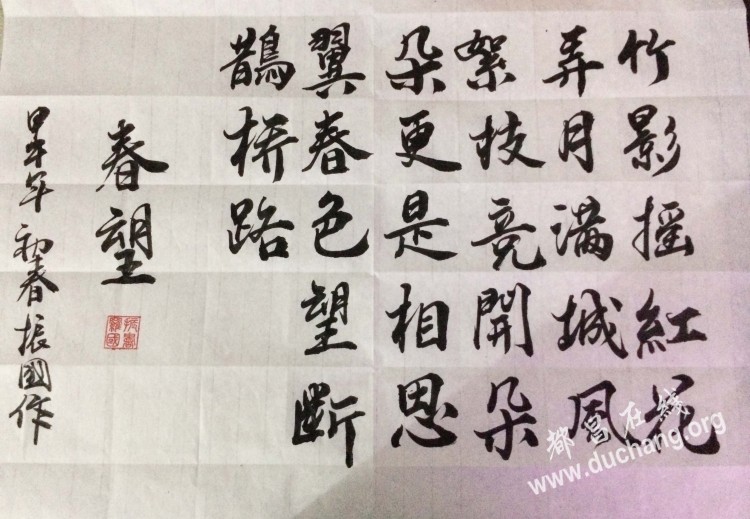 竹影摇紅花
弄月满城風
絮枝竞開朵
朵更是相思
翼春色望斷
鵲橋路
春望
甲午年初春振國作
都昌在线
www.duchang.org